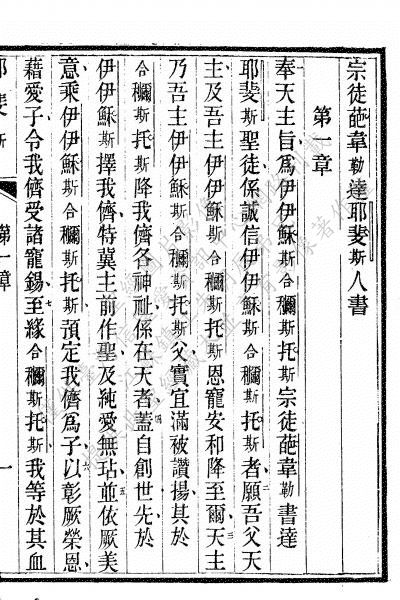 宗徒葩韋勒達耶斐斯人書
第一章
奉天主旨爲伊伊穌斯合穪斯托斯宗徒葩韋勒書達
耶斐斯聖徒係誠信伊伊穌斯合穪斯托斯者願吾父天
主及吾主伊伊穌斯合穪斯托斯恩寵安和降至爾天主
乃吾主伊伊穌斯合穪斯托斯父實宜滿被讚揚其於
合穪斯托斯降我儕各神祉係在天者蓋自創世先於
伊伊穌斯擇我儕特蒖主前作聖及純愛無玷並依厥美
意乘伊伊穌斯合穪斯托斯預定我儕爲子以彰厥榮恩
藉愛子令我儕受諸寵錫至緣合穪斯托斯我等於其血
耶斐斯
第一章
一
二
三
四
五
六
七